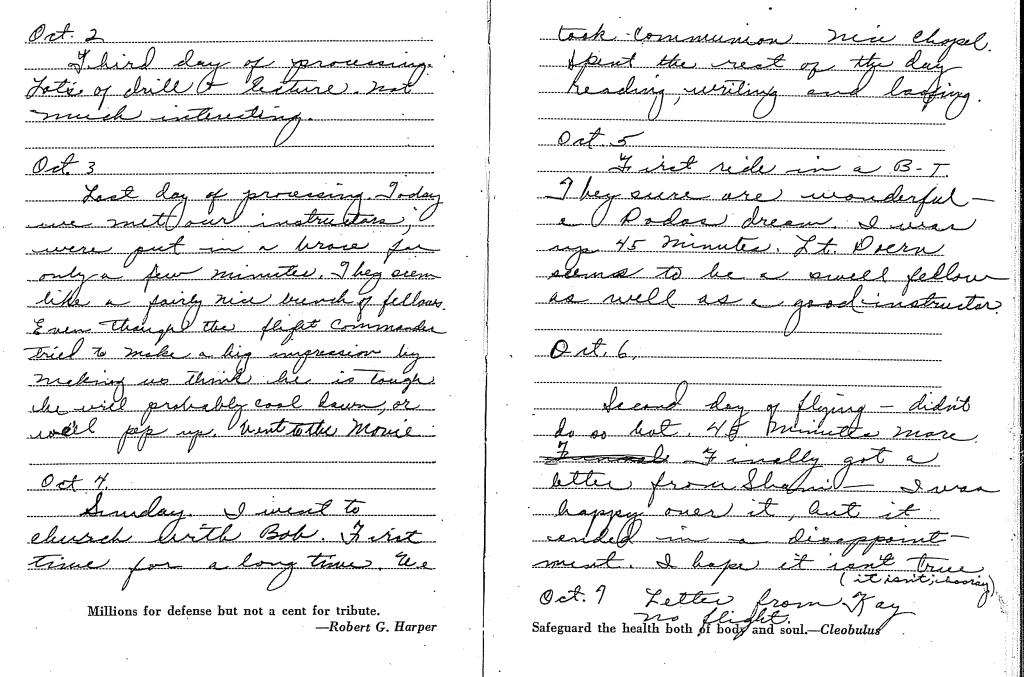 Oct. 2
Third day of processing.
Lots of drill & lecture. Not
much interesting.
Oct. 3
Last day of processing. Today
we met our instructors,
were put in a brace for
only a few minutes. They seem
like a fairly nice bunch of fellows.
Even though the flight commander
tried to make a big impression by
making us think he is tough
he will probably cool down, or
we'll pep up. Went to the Movie
Oct 4.
Sunday. I went to
church with Bob. First
time for a long time. We
Millions for defense but not a cent for tribute.
—Robert G. Harper
took communion nice chapel.
Spent the rest of the day
reading, writing and loafing.
Oct. 5
First ride in a B-T.
They sure are wonderful—
a Dodos dream. I was
up 45 minutes. Lt. Doern
seems to be a swell fellow
as well as a good instructor.
Oct. 6.
Second day of flying — didn't
do so hot. 45 Minutes more.
Finally got a
letter from — I was
happy over it, but it
ended in a disappoint-
ment. I hope it isn't true
(it isn't; hooray)
Oct. 7 Letter from Kay
no flight.
Safeguard the health both of body and soul.—Cleobulus